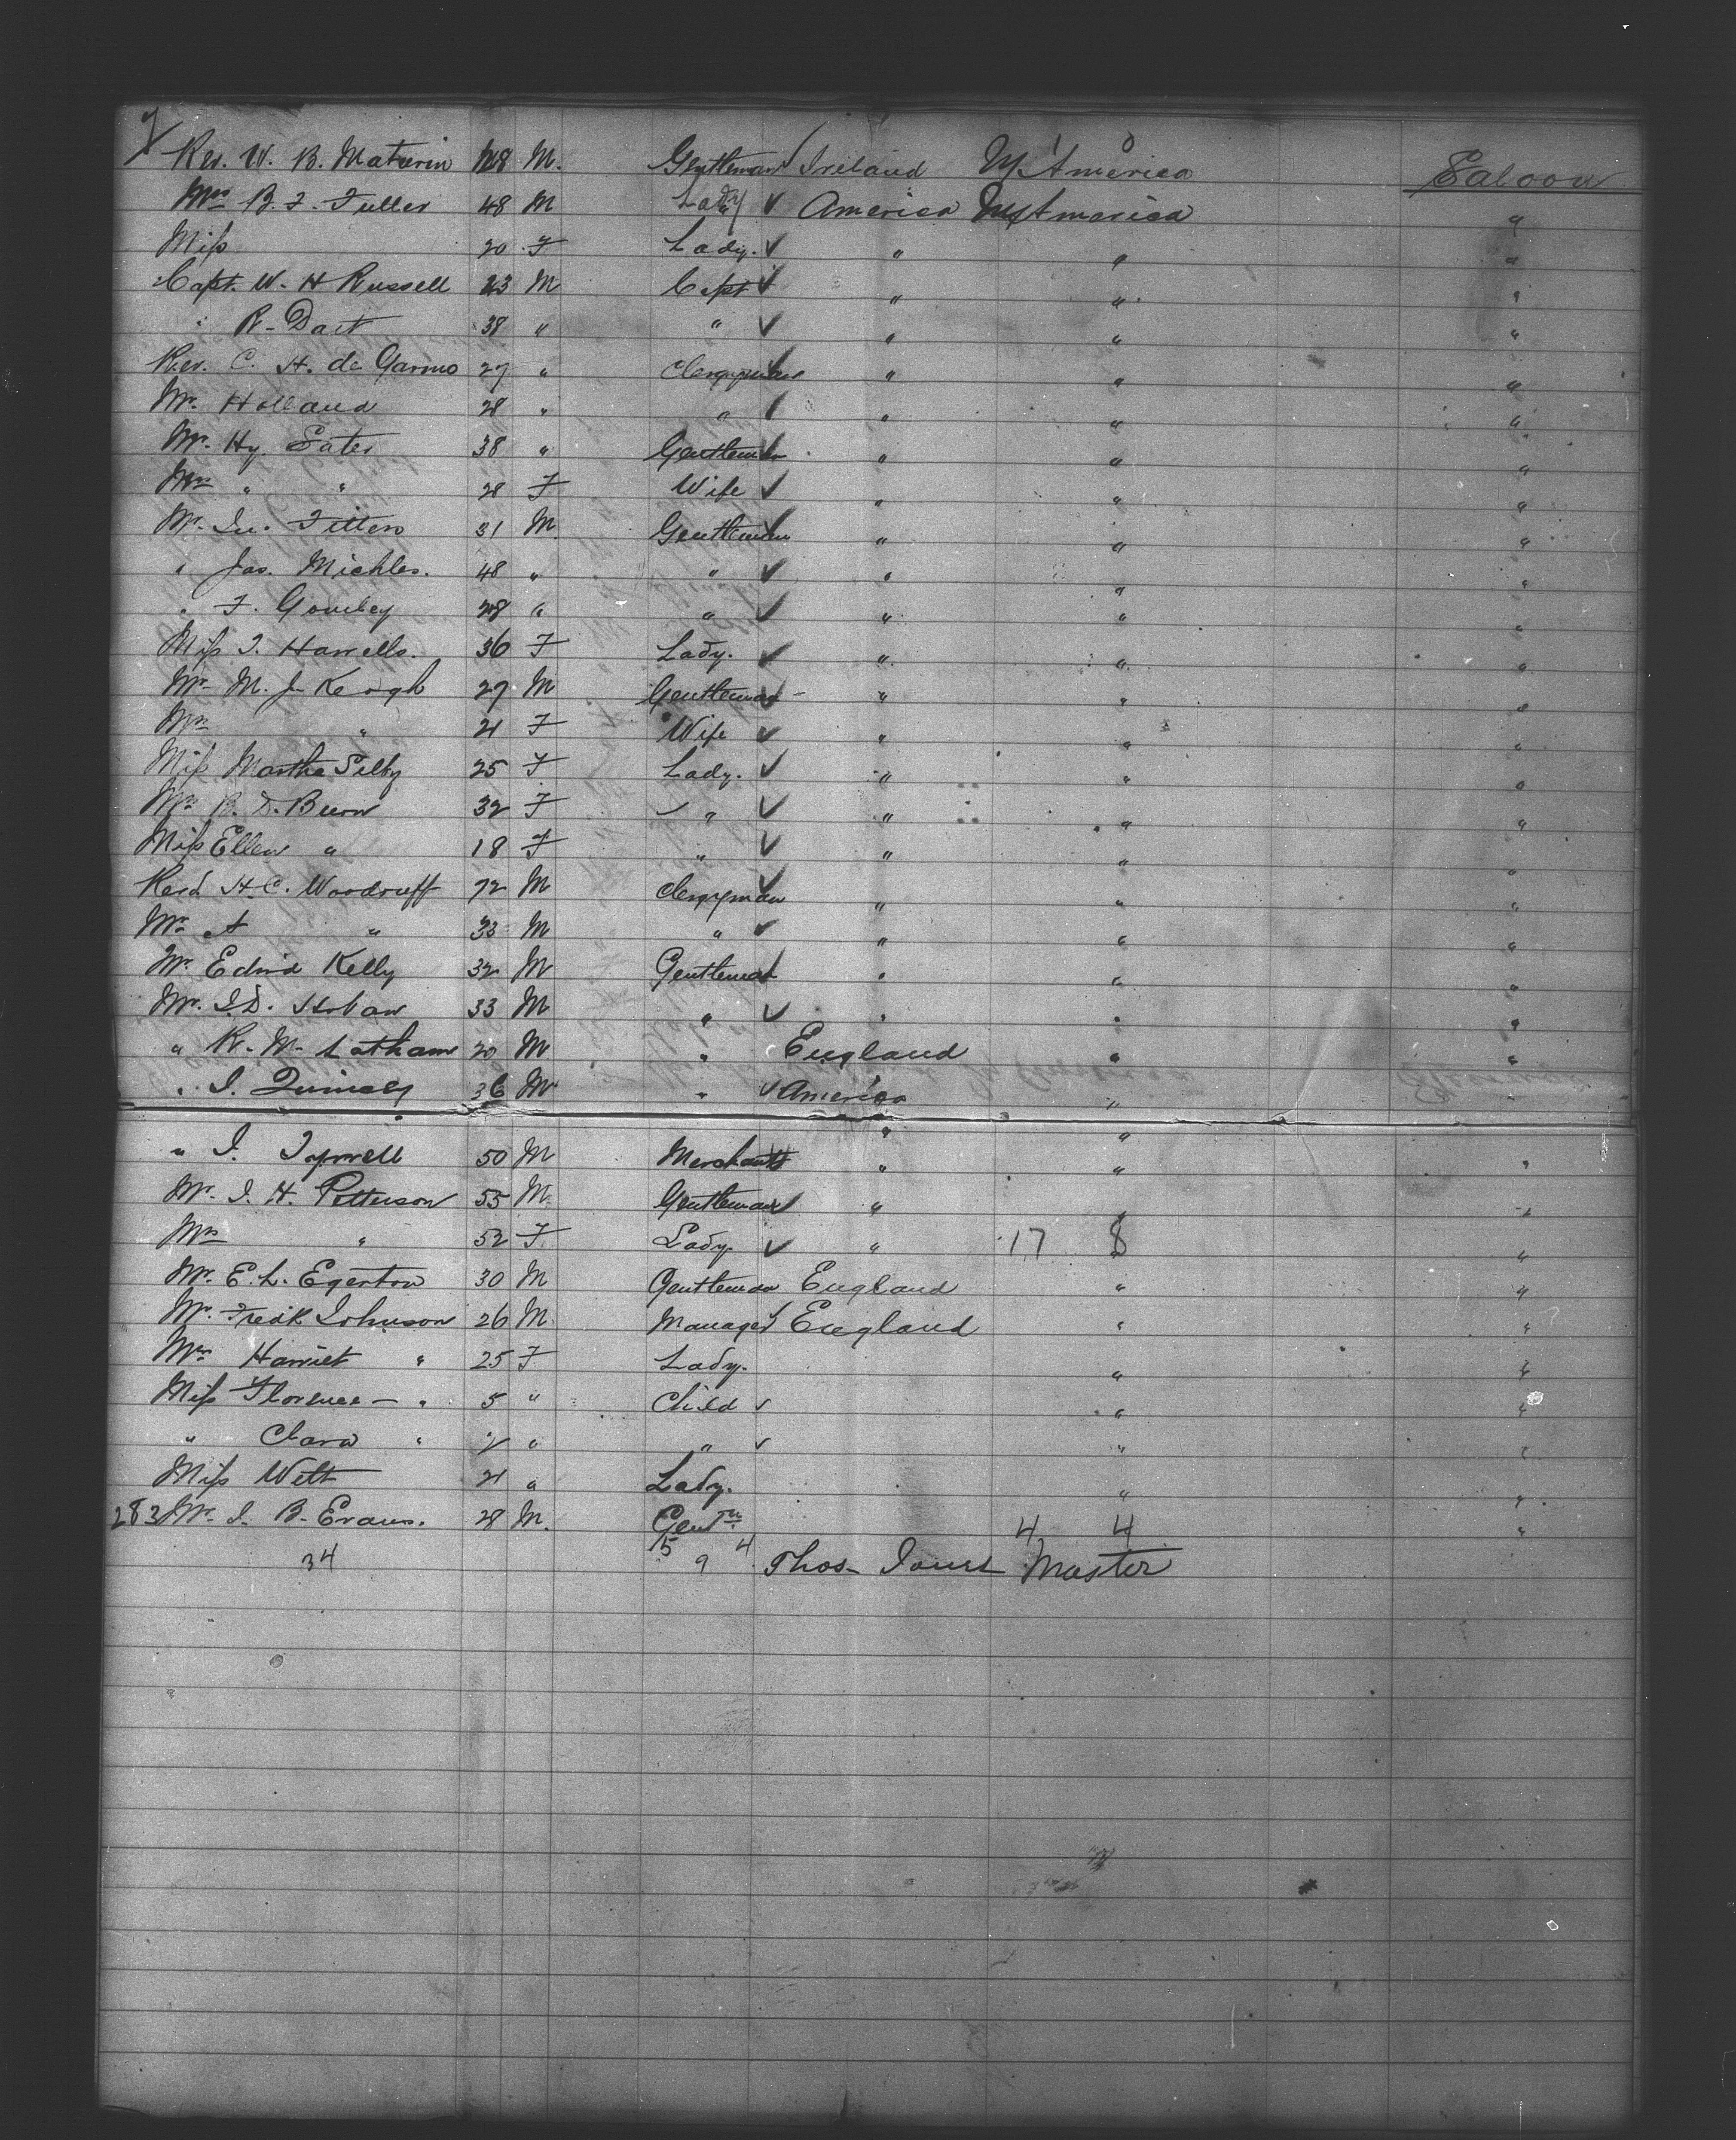 Rev. W. B. Maturin 48 M. Gentleman Ireland N America Saloon
Mrs B. F. Fuller 48 M Lady America N America "
Miss 20 F Lady. " " "
Capt. W. H Russell 23 M Capt " " "
" R- Dart 38 " " " " "
Rev. C. H. de Garmo 27 " Clergyman " " "
Mr. Holland 28 " " " " "
Mr. Hy 38 " Gentleman " " "
Mrs " " 28 F Wife " " "
Mr. Jn. 31 M Gentleman " " "
" Jas. Michles. 48 " " " " "
" F. Gourley 28 " " " " "
Miss J. Harrells. 36 F Lady. " " "
Mr. M. J- Keogh 27 M Gentleman " " "
Mrs " 21 F Wife " " "
Miss Martha Selby 25 F Lady. " " "
Mrs B. D. 32 F " " " "
Miss Ellen " 18 F " " " "
Revd H. C. Woodruff 72 M Clergyman " " "
Mr. A " 33 M " " " "
Mr. Edwd Kelly 32 M Gentleman " " "
Mr. J. D. Hoban 33 M " " " "
" R. M. Latham 20 M " England " "
" J. 36 M " America " "
" "
" J. Tyrrell 50 M Merchant " " "
Mr. J. H. Patterson 55 M Gentleman " " "
Mrs " 52 F Lady " 17 8 "
Mr. E. L. Egerton 30 M Gentleman England " "
Mr. Fredk Johnson 26 M. Manager England " "
Mrs Harriet " 25 F Lady. " "
Miss Florence - " 5 " Child " "
" Clara " 2 " " " "
Miss Welt 21 " Lady. " "
283 Mr. J. B. Evans. 28 M. Gentn 4 4 "
34 15 9 4 Thos- Jones Master